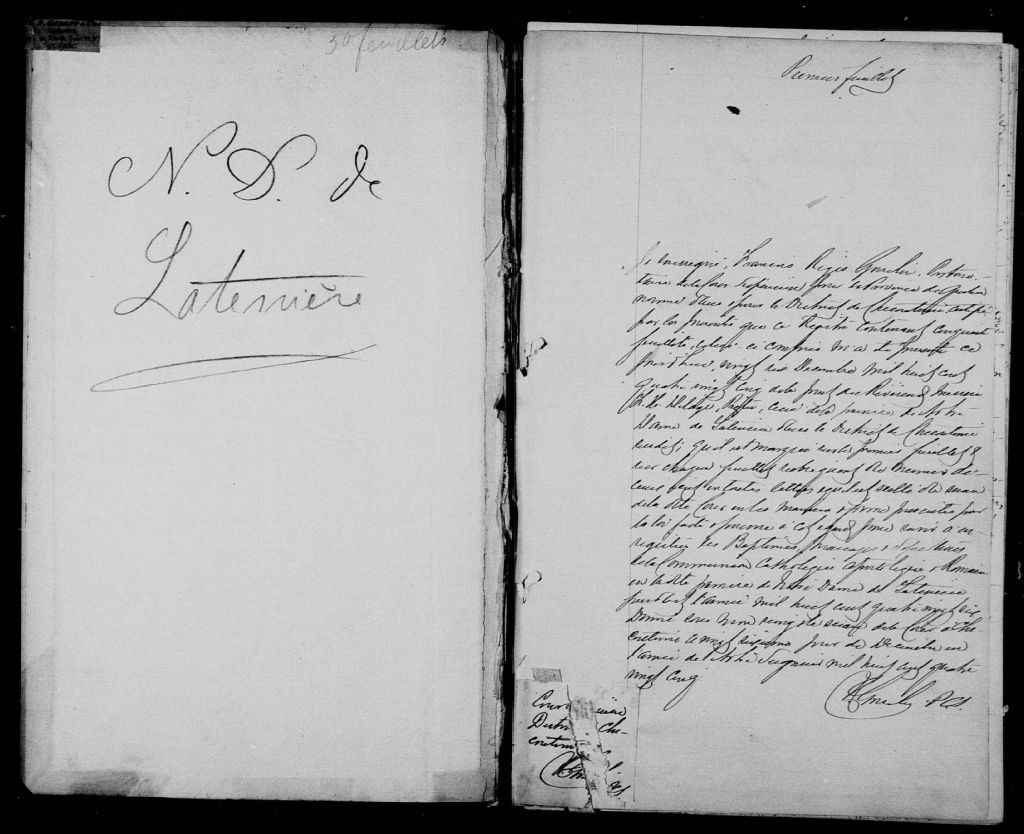 50 feuillets
N. D. de
Laterrière
Premier feuillet
Je soussigné, François Régis Gosselin, Protono-
taire de la Cour Supérieure pour la Province de Québec
nommé dans & pour le District de Chicoutimi certifie
par les présentes que ce Registre contenant cinquante
feuillets, celui-ci compris m'a été présenté ce
jourd'hui, vingt six Décembre mil huit cent
quatre vingt cinq de la part du Révérend Messire
Delâge, Prêtre, curé de la paroisse de Notre
Dame de Laterrière dans le District de Chicoutimi
susdit; qu'il est marqué sur le premier feuillet &
sur chaque feuillet subséquent du numéro de
celui-ci en toutes lettres & qu'il est scellé du sceau
de la dite Cour en la manière & forme prescrites par
la loi faite & pourvue à cet égard pour servir à en-
registrer les Baptêmes, Mariages & Sépultures
de la Communion Catholique Apostolique & Romaine
en la dite paroisse de Notre Dame de Laterrière
pendant l'année mil huit cent quatre vingt six.
Donné sous mon seing & le sceau de la Cour à Chi-
coutimi ce vingt sixième jour de Décembre en
l'année de Notre Seigneur mil huit cent quatre
vingt cinq
P.C.S.
Cour
Distr Chi-
coutimi